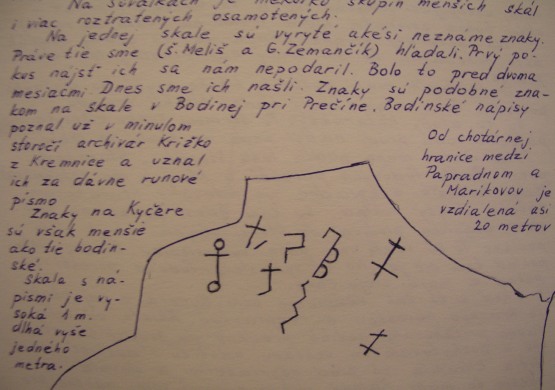 Na Suvalkách je niekoľko skupín menších skál
i viac roztratených osamotených.
Na jednej skale sú vyryté akési neznáme znaky.
Práve tie sme (Š. Meliš a G. Zemančík) hľadali. Prvý po-
kus nájsť ich sa nám nepodaril. Bolo to pred dvoma
mesiačmi Dnes sme ich našli. Znaky sú podobné zna-
kom na skale v Bodinej pri Prečíne. Bodinské nápisy
poznal už v minulom
storočí archivár Križko
z Kremnice a uznal
ich za dávne runové
písmo
Znaky na Kyčere
sú však menšie
ako tie bodin-
ské.
Skala s ná-
pismi je vy-
soká 1 m.
dlhá vyše
jedného
metra.
Od chotárnej
hranice medzi
Papradnom a
Marikovou je
vzdialená asi
20 metrov